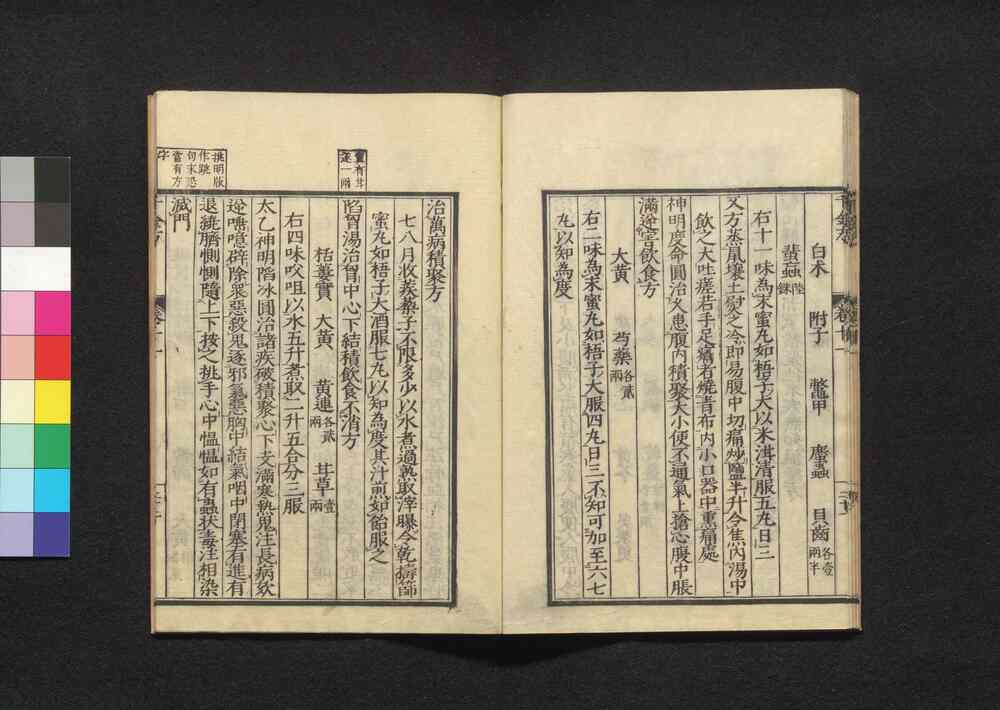 白术　附子　鼈甲　䗪蟲　貝齒各壹兩半
蝱蟲陸銖
右十一味爲末蜜丸如梧子大以米泔清服五丸日三
又方蒸鼠壤土熨之冷即易腹中切痛炒鹽半升令焦內湯中
飲之大吐瘥若手足痛者燒青布內小口器中熏痛處
神明度命圓治久患腹內積聚大小便不通氣上搶心腹中脹
滿逆害飲食方
大黃　芍藥各貳兩
右二味爲末蜜丸如梧子大服四丸日三不知可加至六七
丸以知爲度
治萬病積聚方
七八月收蒺蔾子不限多少以水煮過熟取滓曝令乾擣篩
蜜丸如梧子大酒服七丸以知爲度其汁煎如飴服之
陷胷湯治胷中心下結積飲食不消方
栝蔞實　大黃　黃連各貳兩　甘草壹兩
右四味㕮咀以水五升煮取二升五合分三服
太乙神明陷冰圓治諸疾破積聚心下支滿寒熱鬼注長病欬
逆唾噫辟除衆惡殺鬼逐邪氣惡胸中結氣咽中閉塞有進有
退繞臍惻惻隨上下按之挑手心中慍慍如有蟲狀毒注相染
滅門
桃明版
作跳
句末恐
當有方
字